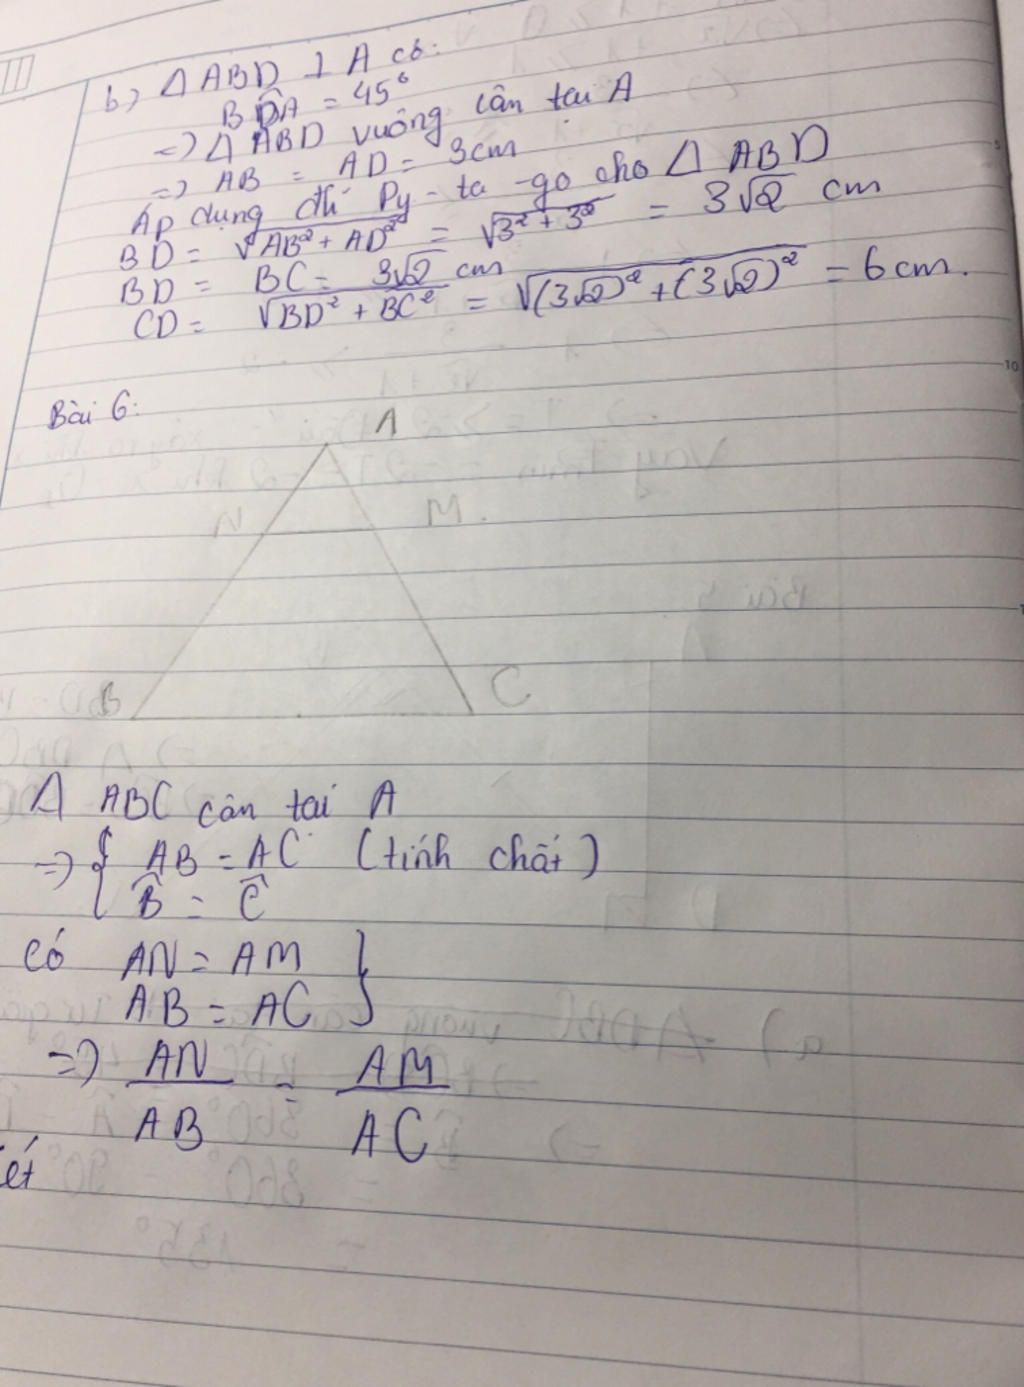 b) Δ ABD ⊥ A có:
BD̂A = 45°
=> Δ ABD vuông cân tại A
=> AB = AD = 3cm
Áp dụng đlí Py-ta-go cho Δ ABD
BD = √AB² + AD² = √3² + 3² = 3√2 cm
BD = BC = 3√2 cm
CD = √BD² + BC² = √(3√2)² + (3√2)² = 6cm.
10
Bài 6:
A
N M.
B C
Δ ABC cân tại A
=> { AB = AC (tính chất)
B̂ = Ĉ
có AN = AM }
AB = AC
=> AN/AB = AM/AC